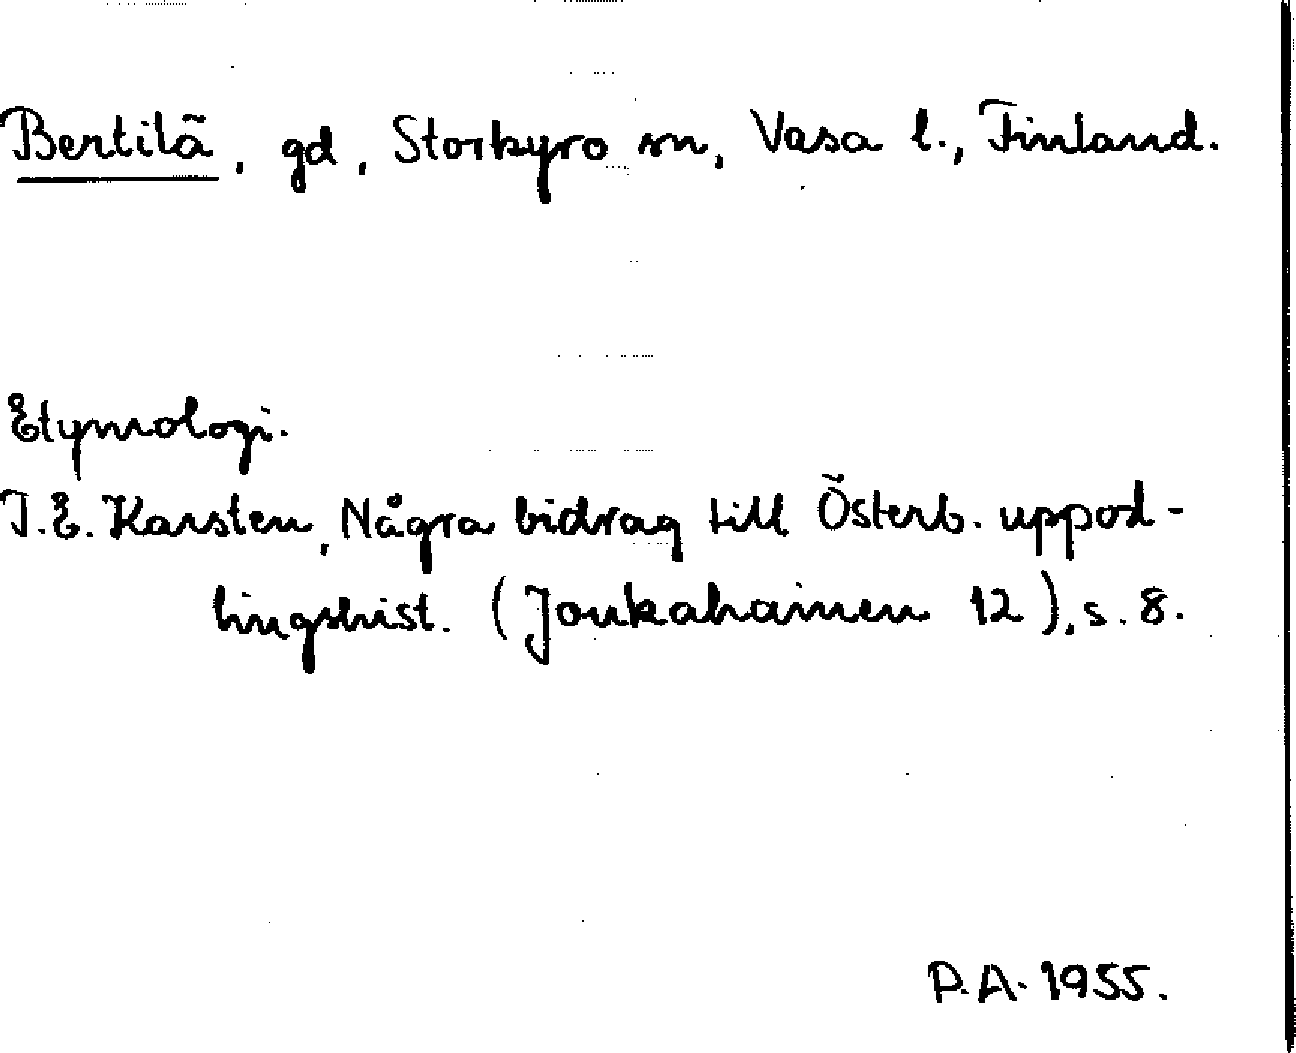 Bertilä, gd, Storkyro sn, Vasa l., Finland.
Etymologi.
T.E. Karsten, Några bidrag till Österb. uppod-
lingshist. (Joukahainen 12), s. 8.
P.A. 1955.